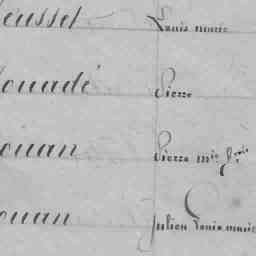 eusset Louis marie
ouadé Pierre
ouan Pierre m^ie f^çois
ouan Julien Louis marie